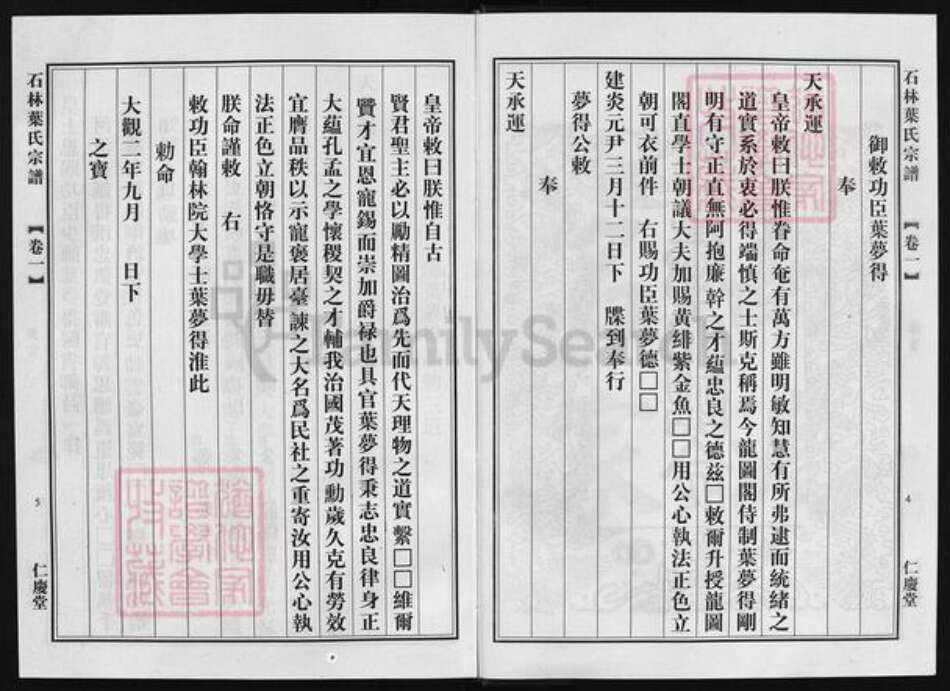 石林葉氏宗譜 【卷一】 4 仁慶堂
御敕功臣葉夢得
奉
天承運
皇帝敕曰朕惟眷命奄有萬方雖明敏知慧有所弗逮而統緒之
道實系於衷必得端慎之士斯克稱焉今龍圖閣侍制葉夢得剛
明有守正直無阿抱廉幹之才蘊忠良之德茲□敕爾升授龍圖
閣直學士朝議大夫加賜黄緋紫金魚□□用公心執法正色立
朝可衣前件 右賜功臣葉夢德□□
建炎元尹三月十二日下 牒到奉行
夢得公敕
奉
天承運
皇帝敕曰朕惟自古
賢君聖主必以勵精圖治爲先而代天理物之道實繫□□維爾
贊才宜恩寵錫而崇加爵禄也具官葉夢得秉志忠良律身正
大蘊孔孟之學懷稷契之才輔我治國茂著功勳歲久克有勞效
宜膺品秩以示寵褒居臺諫之大名爲民社之重寄汝用公心執
法正色立朝恪守是職毋替
朕命謹敕 右
敕功臣翰林院大學士葉夢得淮此
勅命
大觀二年九月 日下
之寶
石林葉氏宗譜 【卷一】 5 仁慶堂
FamilySearch